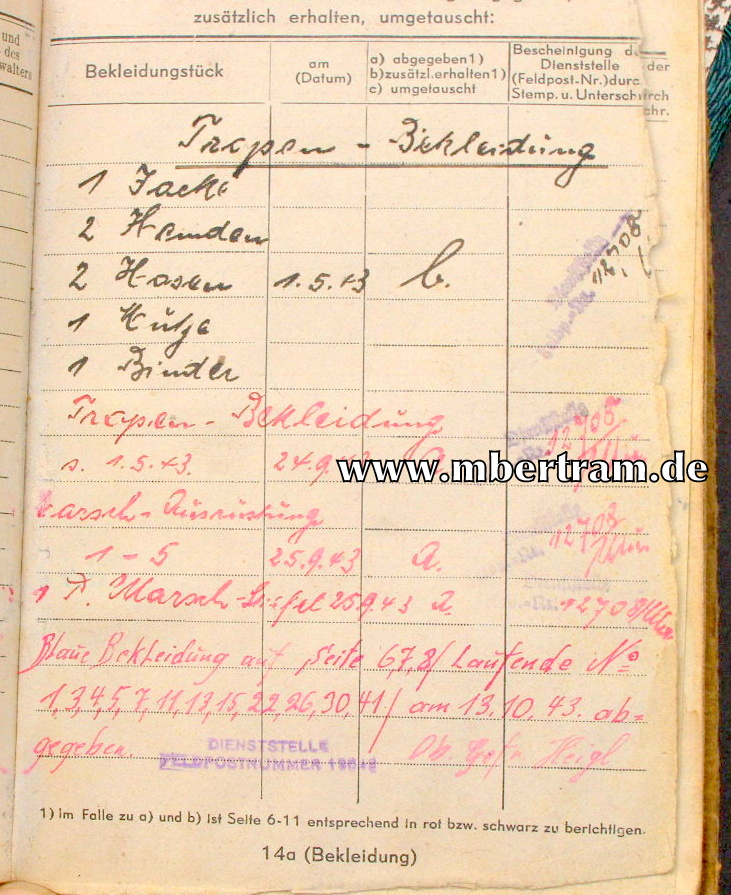 und
des
walters
zusätzlich erhalten, umgetauscht:
Bekleidungstück
am
(Datum)
a) abgegeben1)
b)zusätzl.erhalten1)
c) umgetauscht
Bescheinigung d
Dienststelle der
(Feldpost-Nr.)durc
Stemp. u. Unterschrch
chr.
Tropen - Bekleidung
1 Jacke
2 Hemden
2 Hosen 1.5.43 b. 12708
1 Mütze
1 Binder
Tropen - Bekleidung 12708
s. 1.5.43. 24.9.43 a.
Marsch - Ausrüstung 12708
1-5 25.9.43 a.
1 P. Marsch-Stiefel 25.9.43 a. 12708
Blaue Bekleidung auf Seite 6,7,8/ Laufende No
1,3,4,5,7,11,13,15,22,26,30,41/ am 13.10.43. ab=
gegeben. Ob. Heigl
DIENSTSTELLE
FELDPOSTNUMMER
www.mbertram.de
1) Im Falle zu a) und b) ist Seite 6-11 entsprechend in rot bzw. schwarz zu berichtigen.
14a (Bekleidung)